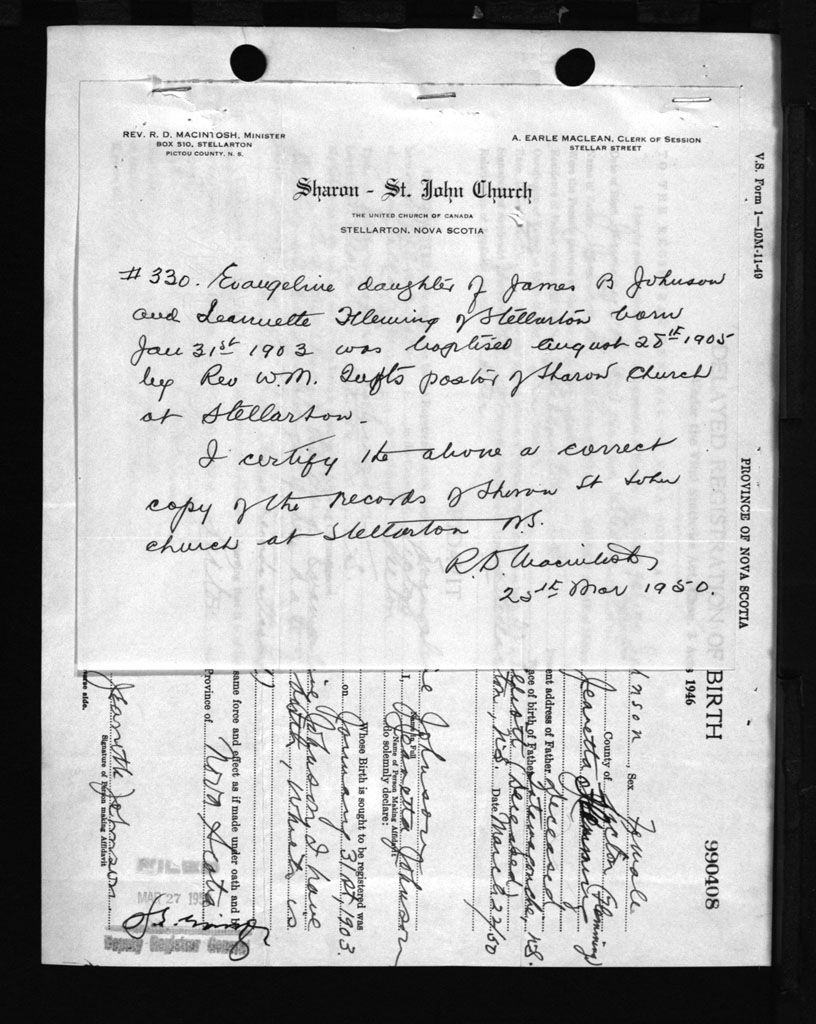 REV. R. D. MACINTOSH, MINISTER
BOX 510, STELLARTON
PICTOU COUNTY, N. S.
A. EARLE MACLEAN, CLERK OF SESSION
STELLAR STREET
Sharon - St. John Church
THE UNITED CHURCH OF CANADA
STELLARTON, NOVA SCOTIA
# 330. Evangeline daughter of James B Johnson
and Jeannette Fleming of Stellarton born
Jan 31st 1903 was baptised August 28th 1905
by Rev W.M. Tufts pastor of Sharon Church
at Stellarton.
I certify the above a correct
copy of the records of Sharon St John
church at Stellarton N.S.
R.D. Macintosh
25th Mar 1950.
V.S. Form 1—10M-11-49
PROVINCE OF NOVA SCOTIA
DELAYED REGISTRATION OF BIRTH
1946
990408
nson, Sex Female
County of Pictou
Jeanetta Fleming (Fleming)
ent address of Father deceased
ace of birth of Father
deceased)
ton, N.S. Date March 22/50
Johnson
I, Jeanetta Johnson
Name in Full
Name of Person Making Affidavit
do solemnly declare:
Whose Birth is sought to be registered was
on January 31st, 1903.
Johnson I have
birth, which is
same force and effect as if made under oath and b
Province of Nova Scotia
Jeanetta Johnson
Signature of Person making Affidavit
erse side.
MAR 27 195
Deputy Registrar General